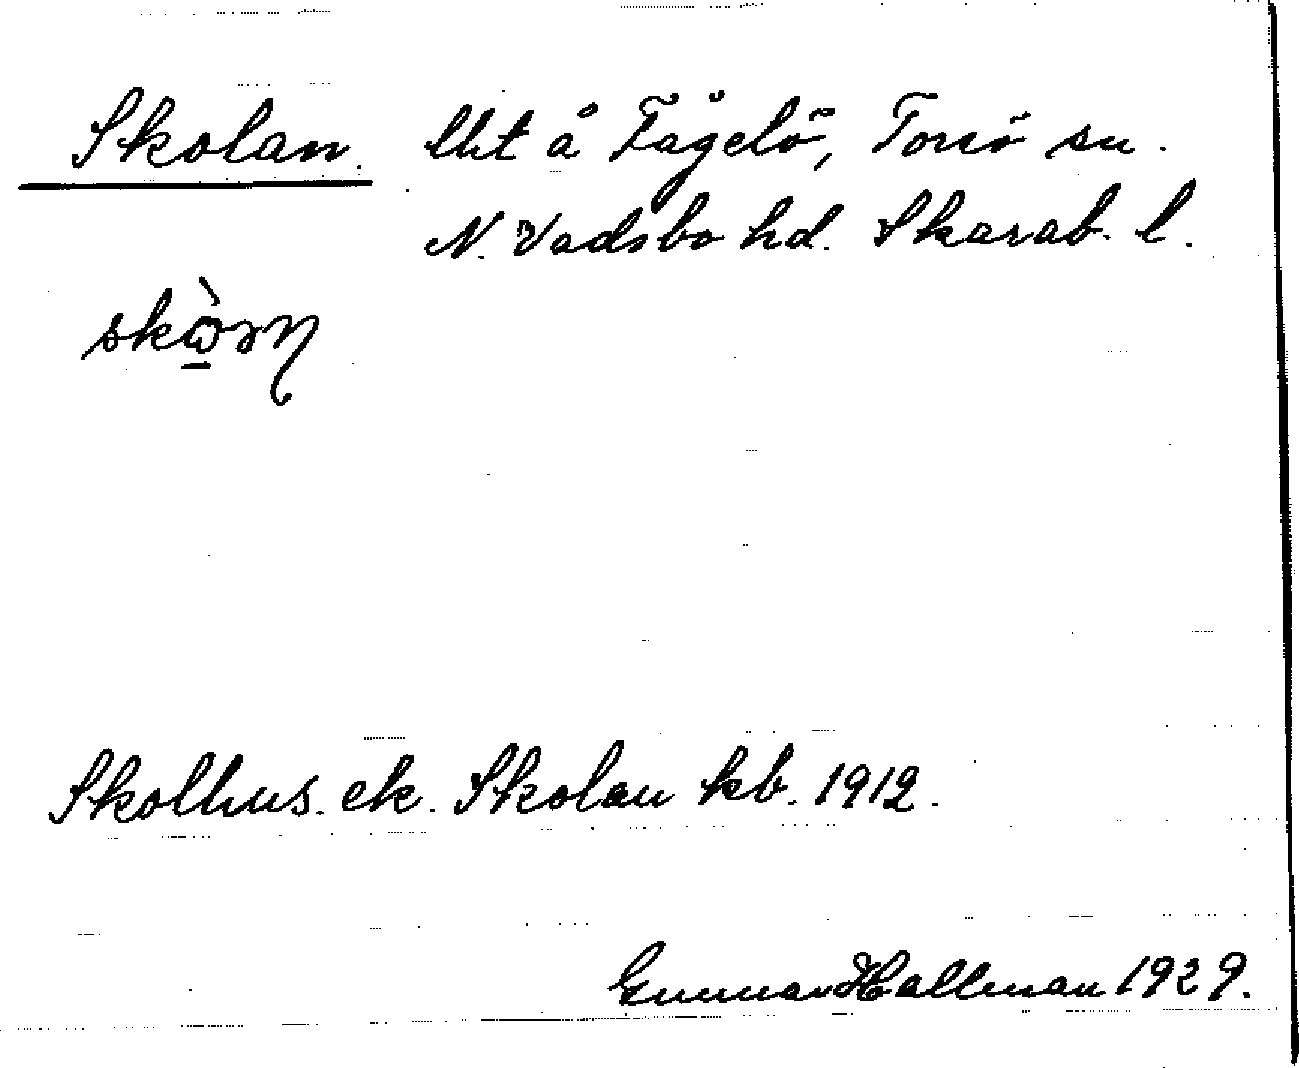 Skolan. lht å Fågelö, Torsö sn.
N. Vadsbo hd. Skarab. l.
Skolhus. ek. Skolan kb. 1912.
Gunnar Hallman 1929.